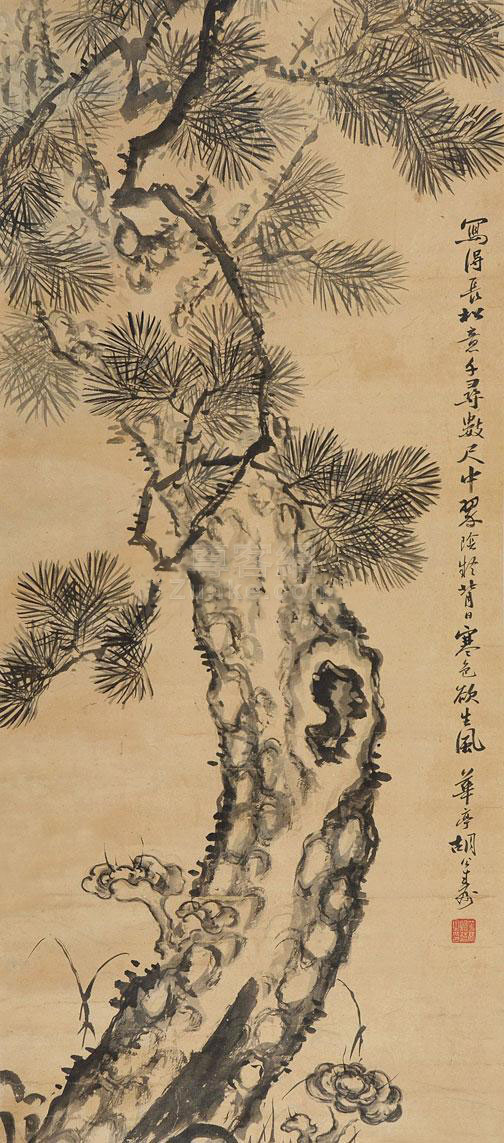 寫得長松意千尋數尺中翠陰疑背日寒色欲生風 華亭胡公壽